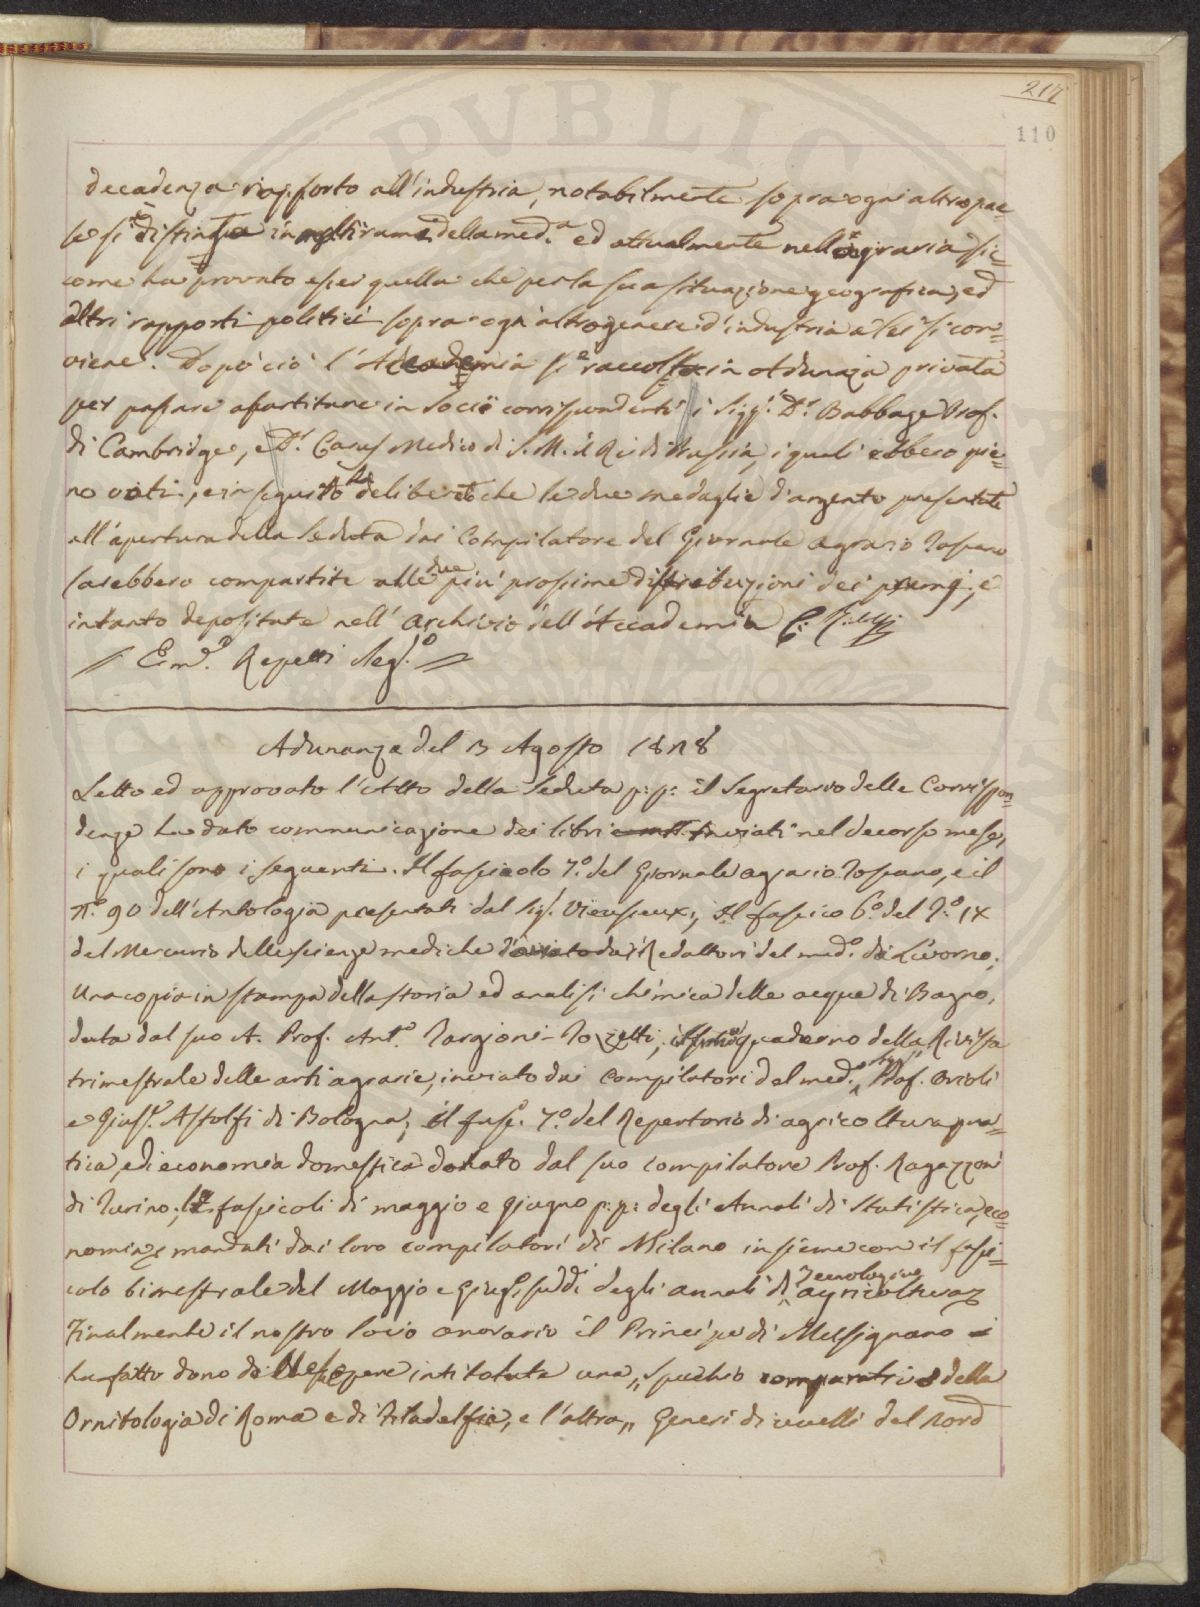 217
110
decadenza rapporto all'industria, notabilmente sopra ogni altro pae=
se si è distinta in molti rami della med.a ed attualmente nell'agraria sic=
come ha provato esser quella che per la sua situazione geografica, ed
altri rapporti politici sopra ogni altro genere d'industria a lei si con=
viene. Dopo ciò l'Accademia si è raccolta in Adunanza privata
per passare a partitare in Socii corrispondenti i Sigg.i D.r Babbage Prof.
di Cambridge, e D.r Carus Medico di S.M. il Re di Prussia, i quali ebbero pie=
no voti, e in seguito ha deliberato che le due medaglie d'argento presentate
all'apertura della Seduta dai Compilatore del Giornale agrario Toscano
sarebbero compartite alle due più prossime distribuzioni dei premi, e
intanto depositate nell'Archivio dell'Accademia C: Ridolfi
Em.o Repetti Seg.o
Adunanza del 3 Agosto 1828
Letto ed approvato l'Atto della Seduta p: p: il Segretario delle Corrispon=
denze ha dato communicazione dei libri inviati nel decorso mese,
i quali sono i seguenti. Il fascicolo 7.o del Giornale agrario Toscano, e il
N.o 90 dell'Antologia presentati dal Sig.r Vieusseux; Il fascico 6.o del T.o IX
del Mercurio delle scienze mediche inviato dai Redattori del med.o di Livorno;
Una copia in stampa della storia ed analisi chimica delle acque di Bagno,
data dal suo A. Prof. Ant.o Targioni-Tozzetti; il quaderno della Rivista
trimestrale delle arti agrarie, inviato dai Compilatori del med.o Sigg.i Prof. Orioli
e Gius.e Astolfi di Bologna; il fasc. 7.o del Repertorio di agricoltura pra=
tica, ed economia domestica donato dal suo compilatore Prof. Ragazzoni
di Turino; le fascicoli di maggio e giugno p: p: degli Annali di Statistica, eco=
nomia, mandati dai loro compilatori di Milano insieme con il fasci=
colo bimestrale del Maggio e Giug.o sudd.i degli annali di Tecnologia agricoltura
Finalmente il nostro socio onorario il Principe di Musignano
ha fatto dono di due opere intitolate una „ Specchio comparativo della
Ornitologia di Roma e di Filadelfia, e l'altra „ Generi di uccelli del Nord